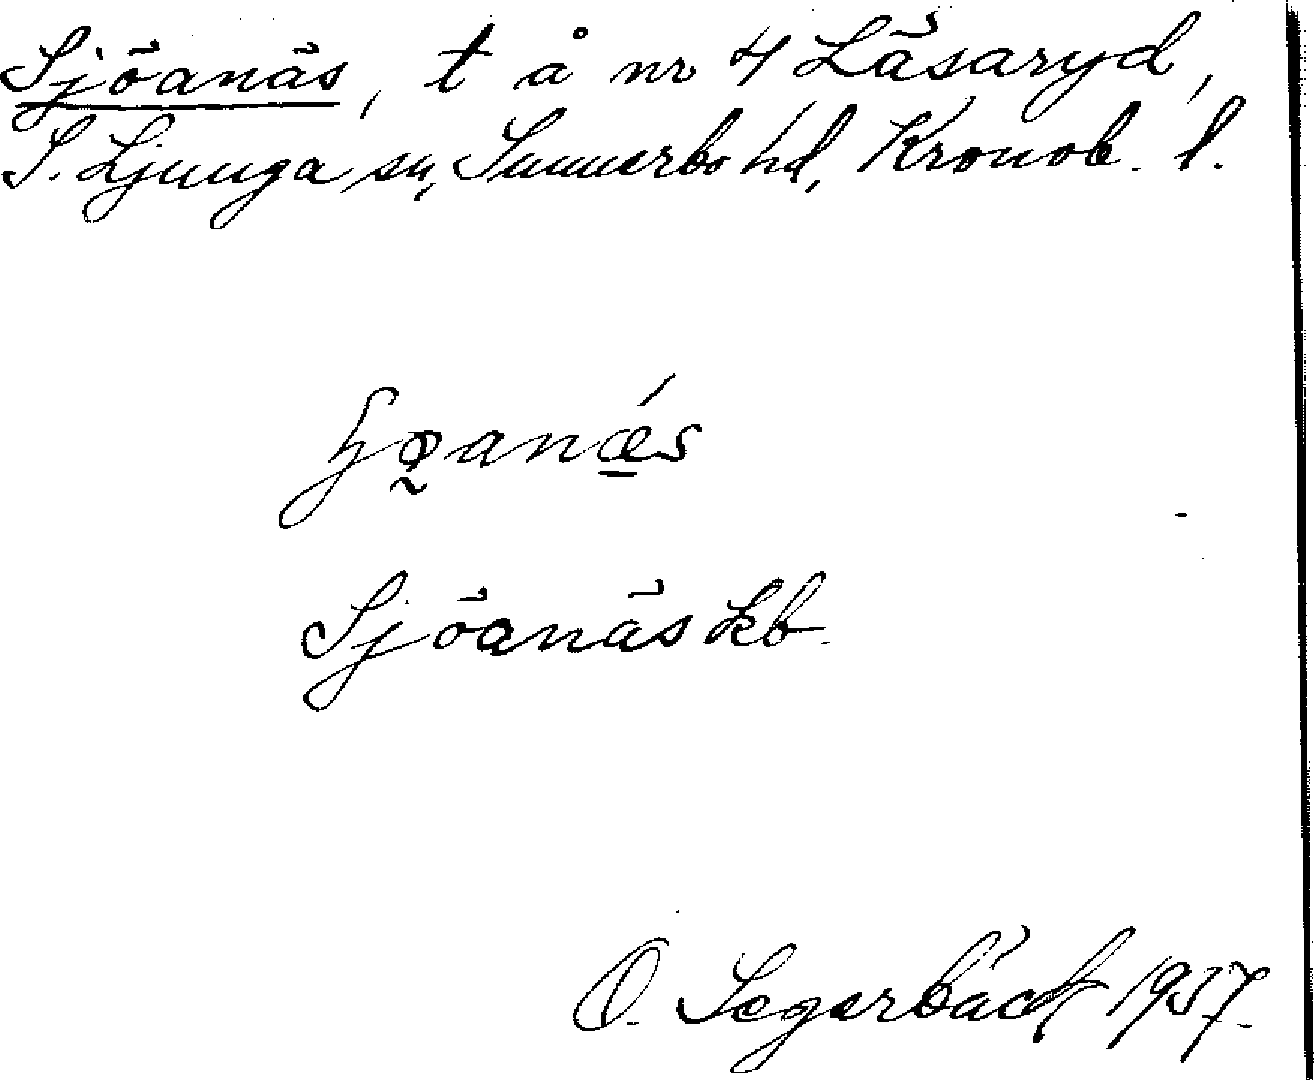 Sjöanäs, t å nr 4 Läsaryd,
S. Ljunga sn, Sunnerbo hd, Kronob. l.
Sjöanäs kb.
O. Segerbäck 1937.